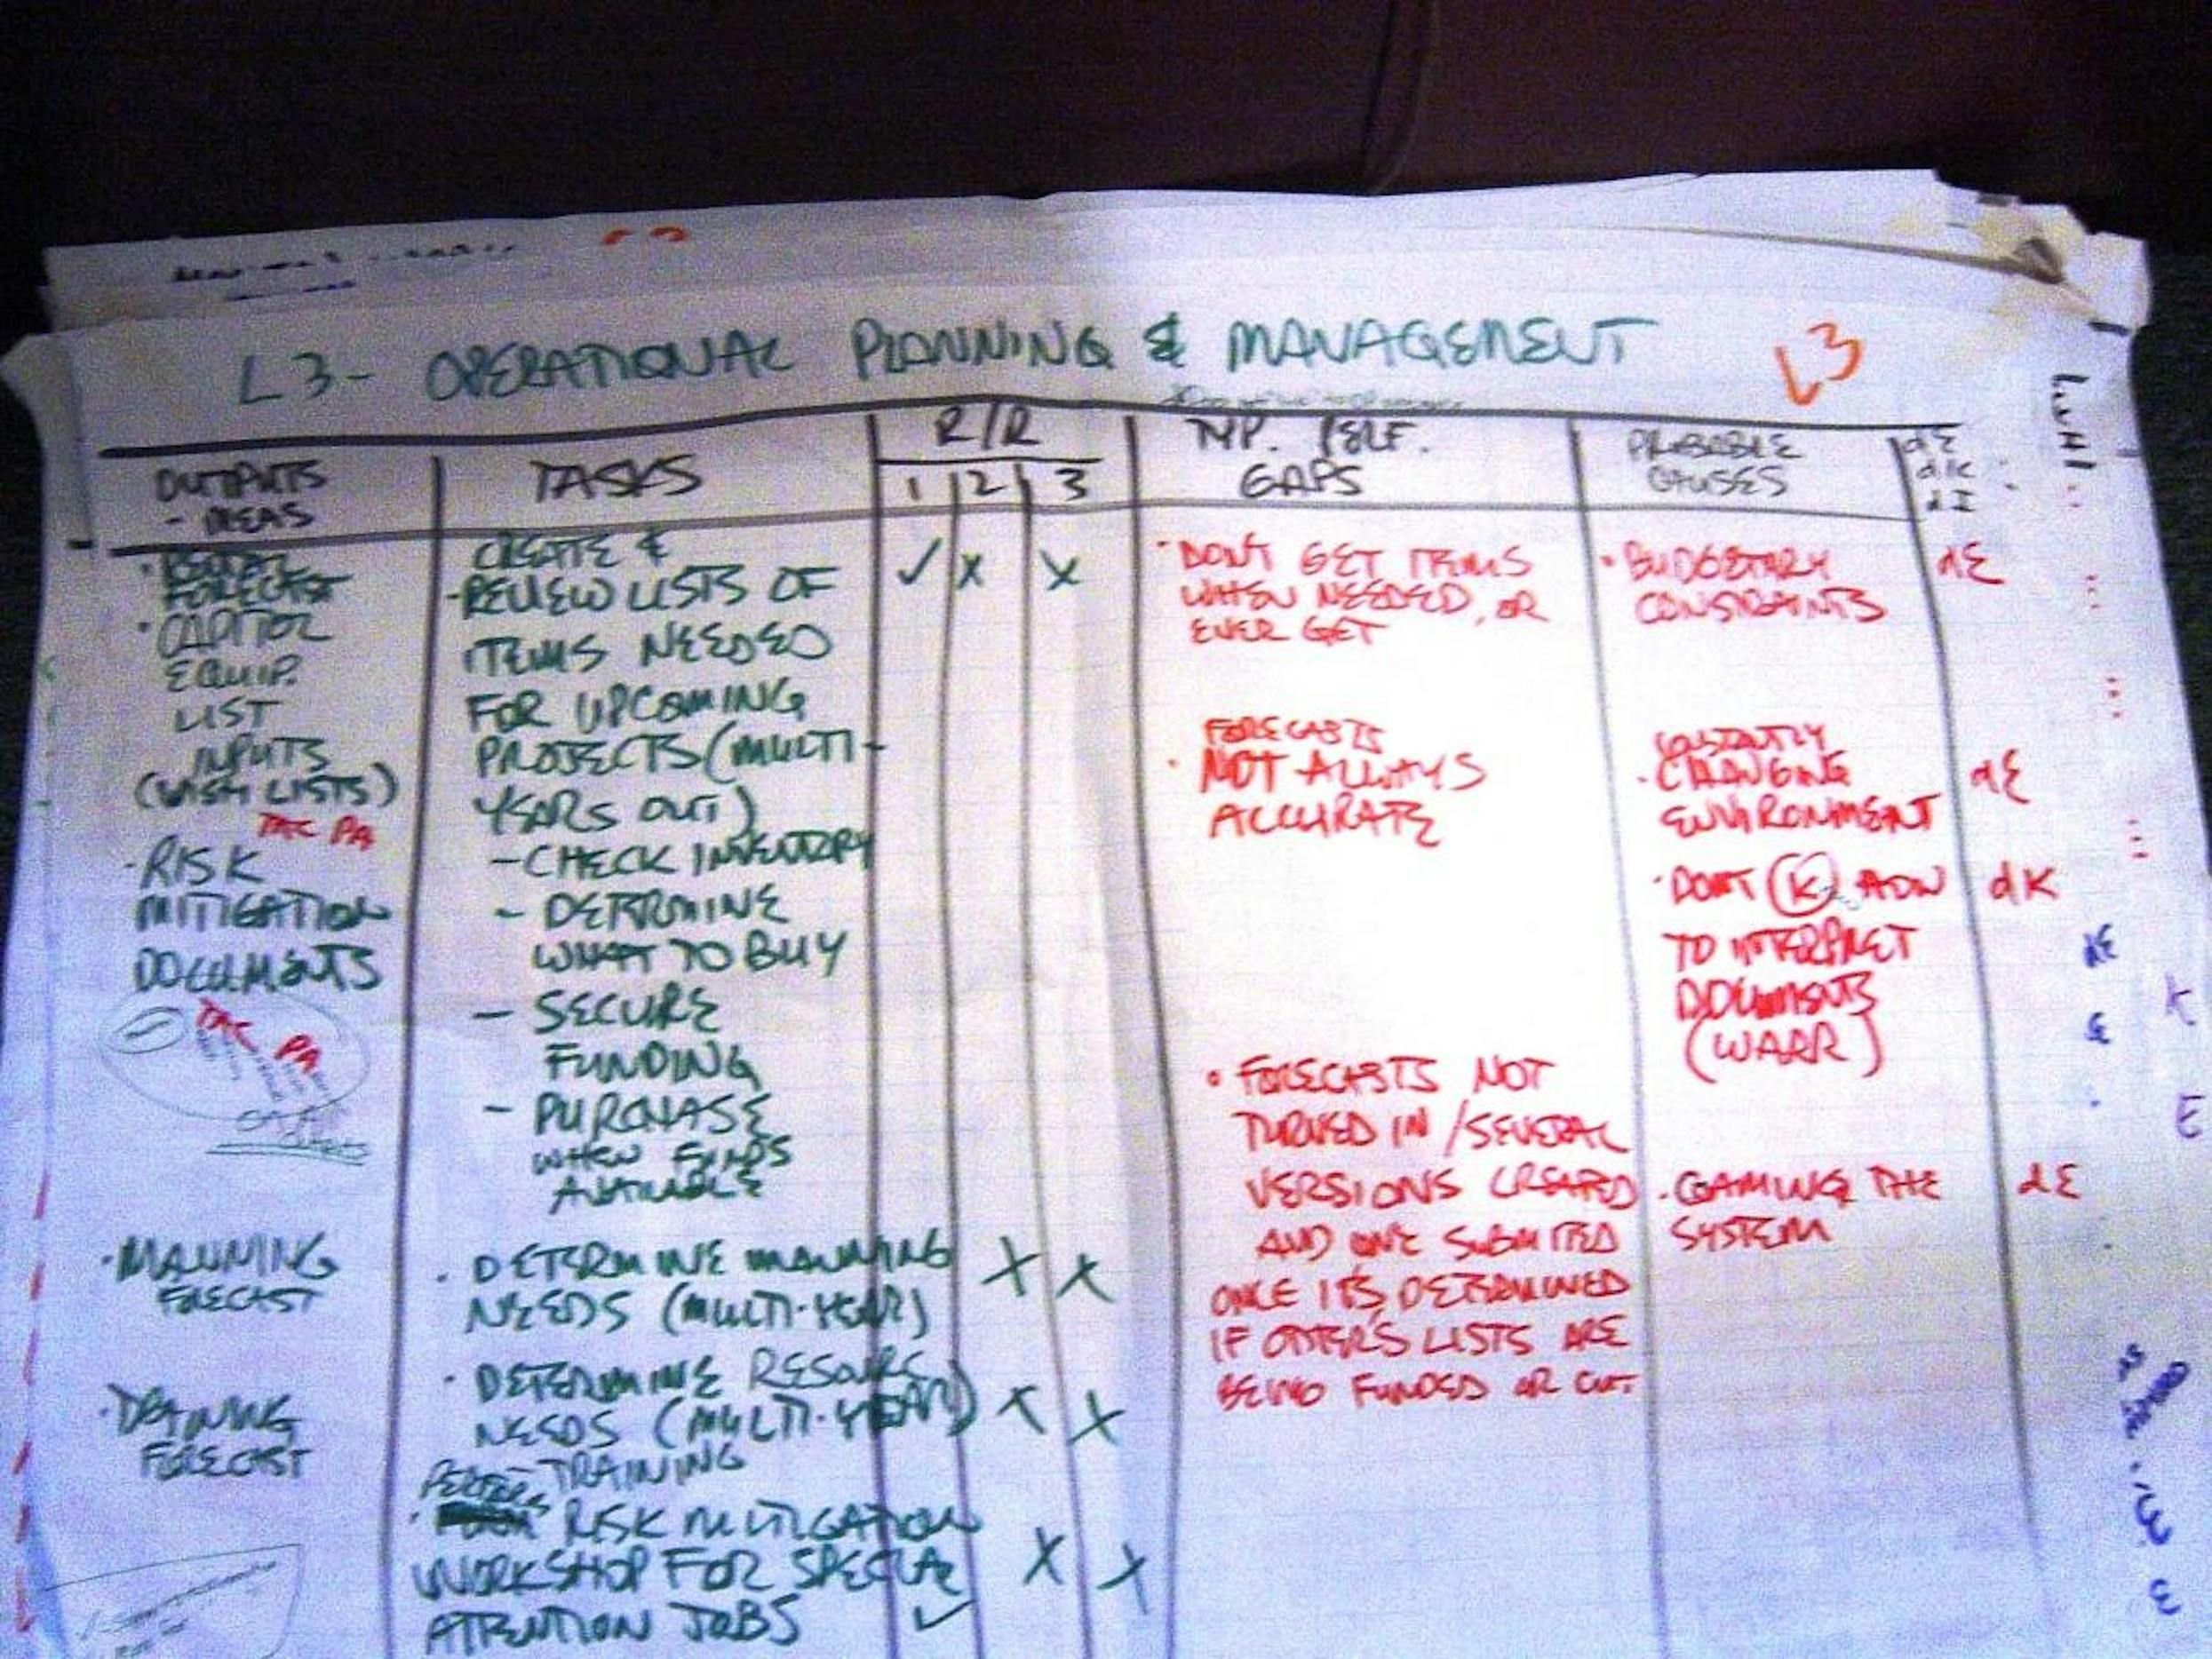 L3- OPERATIONAL PLANNING & MANAGEMENT
L3
OUTPUTS
- MEAS
TASKS
R/R
1 2 3
TYP. PERF.
GAPS
PROBABLE
CAUSES
dE
dK
dI
FORECAST
· CAPITOL
EQUIP.
LIST
INPUTS
(WISH LISTS)
PA
· RISK
MITIGATION
DOCUMENTS
PA
· MANNING
FORECAST
FORECAST
CREATE &
REVIEW LISTS OF
ITEMS NEEDED
FOR UPCOMING
PROJECTS (MULTI-
YEARS OUT)
- CHECK INVENTORY
- DETERMINE
WHAT TO BUY
- SECURE
FUNDING
- PURCHASE
WHEN FUNDS
AVAILABLE
· DETERMINE MANNING
NEEDS (MULTI-YEAR)
· DETERMINE
NEEDS (MULTI-YEAR)
TRAINING
RISK MITIGATION
WORKSHOP FOR SPECIAL
ATTENTION JOBS
✓ X X
X X
X X
X X
✓
· DON'T GET ITEMS
WHEN NEEDED, OR
EVER GET
FORECASTS
· NOT ALWAYS
ACCURATE
· FORECASTS NOT
TURNED IN / SEVERAL
VERSIONS CREATED
AND ONE SUBMITTED
ONCE IT'S DETERMINED
IF OTHER'S LISTS ARE
BEING FUNDED OR CUT
· BUDGETARY
CONSTRAINTS
dE
CONSTANTLY
· CHANGING
ENVIRONMENT
dE
· DON'T K HOW
TO INTERPRET
DOCUMENTS
(WARR)
dK
· GAMING THE
SYSTEM
dE